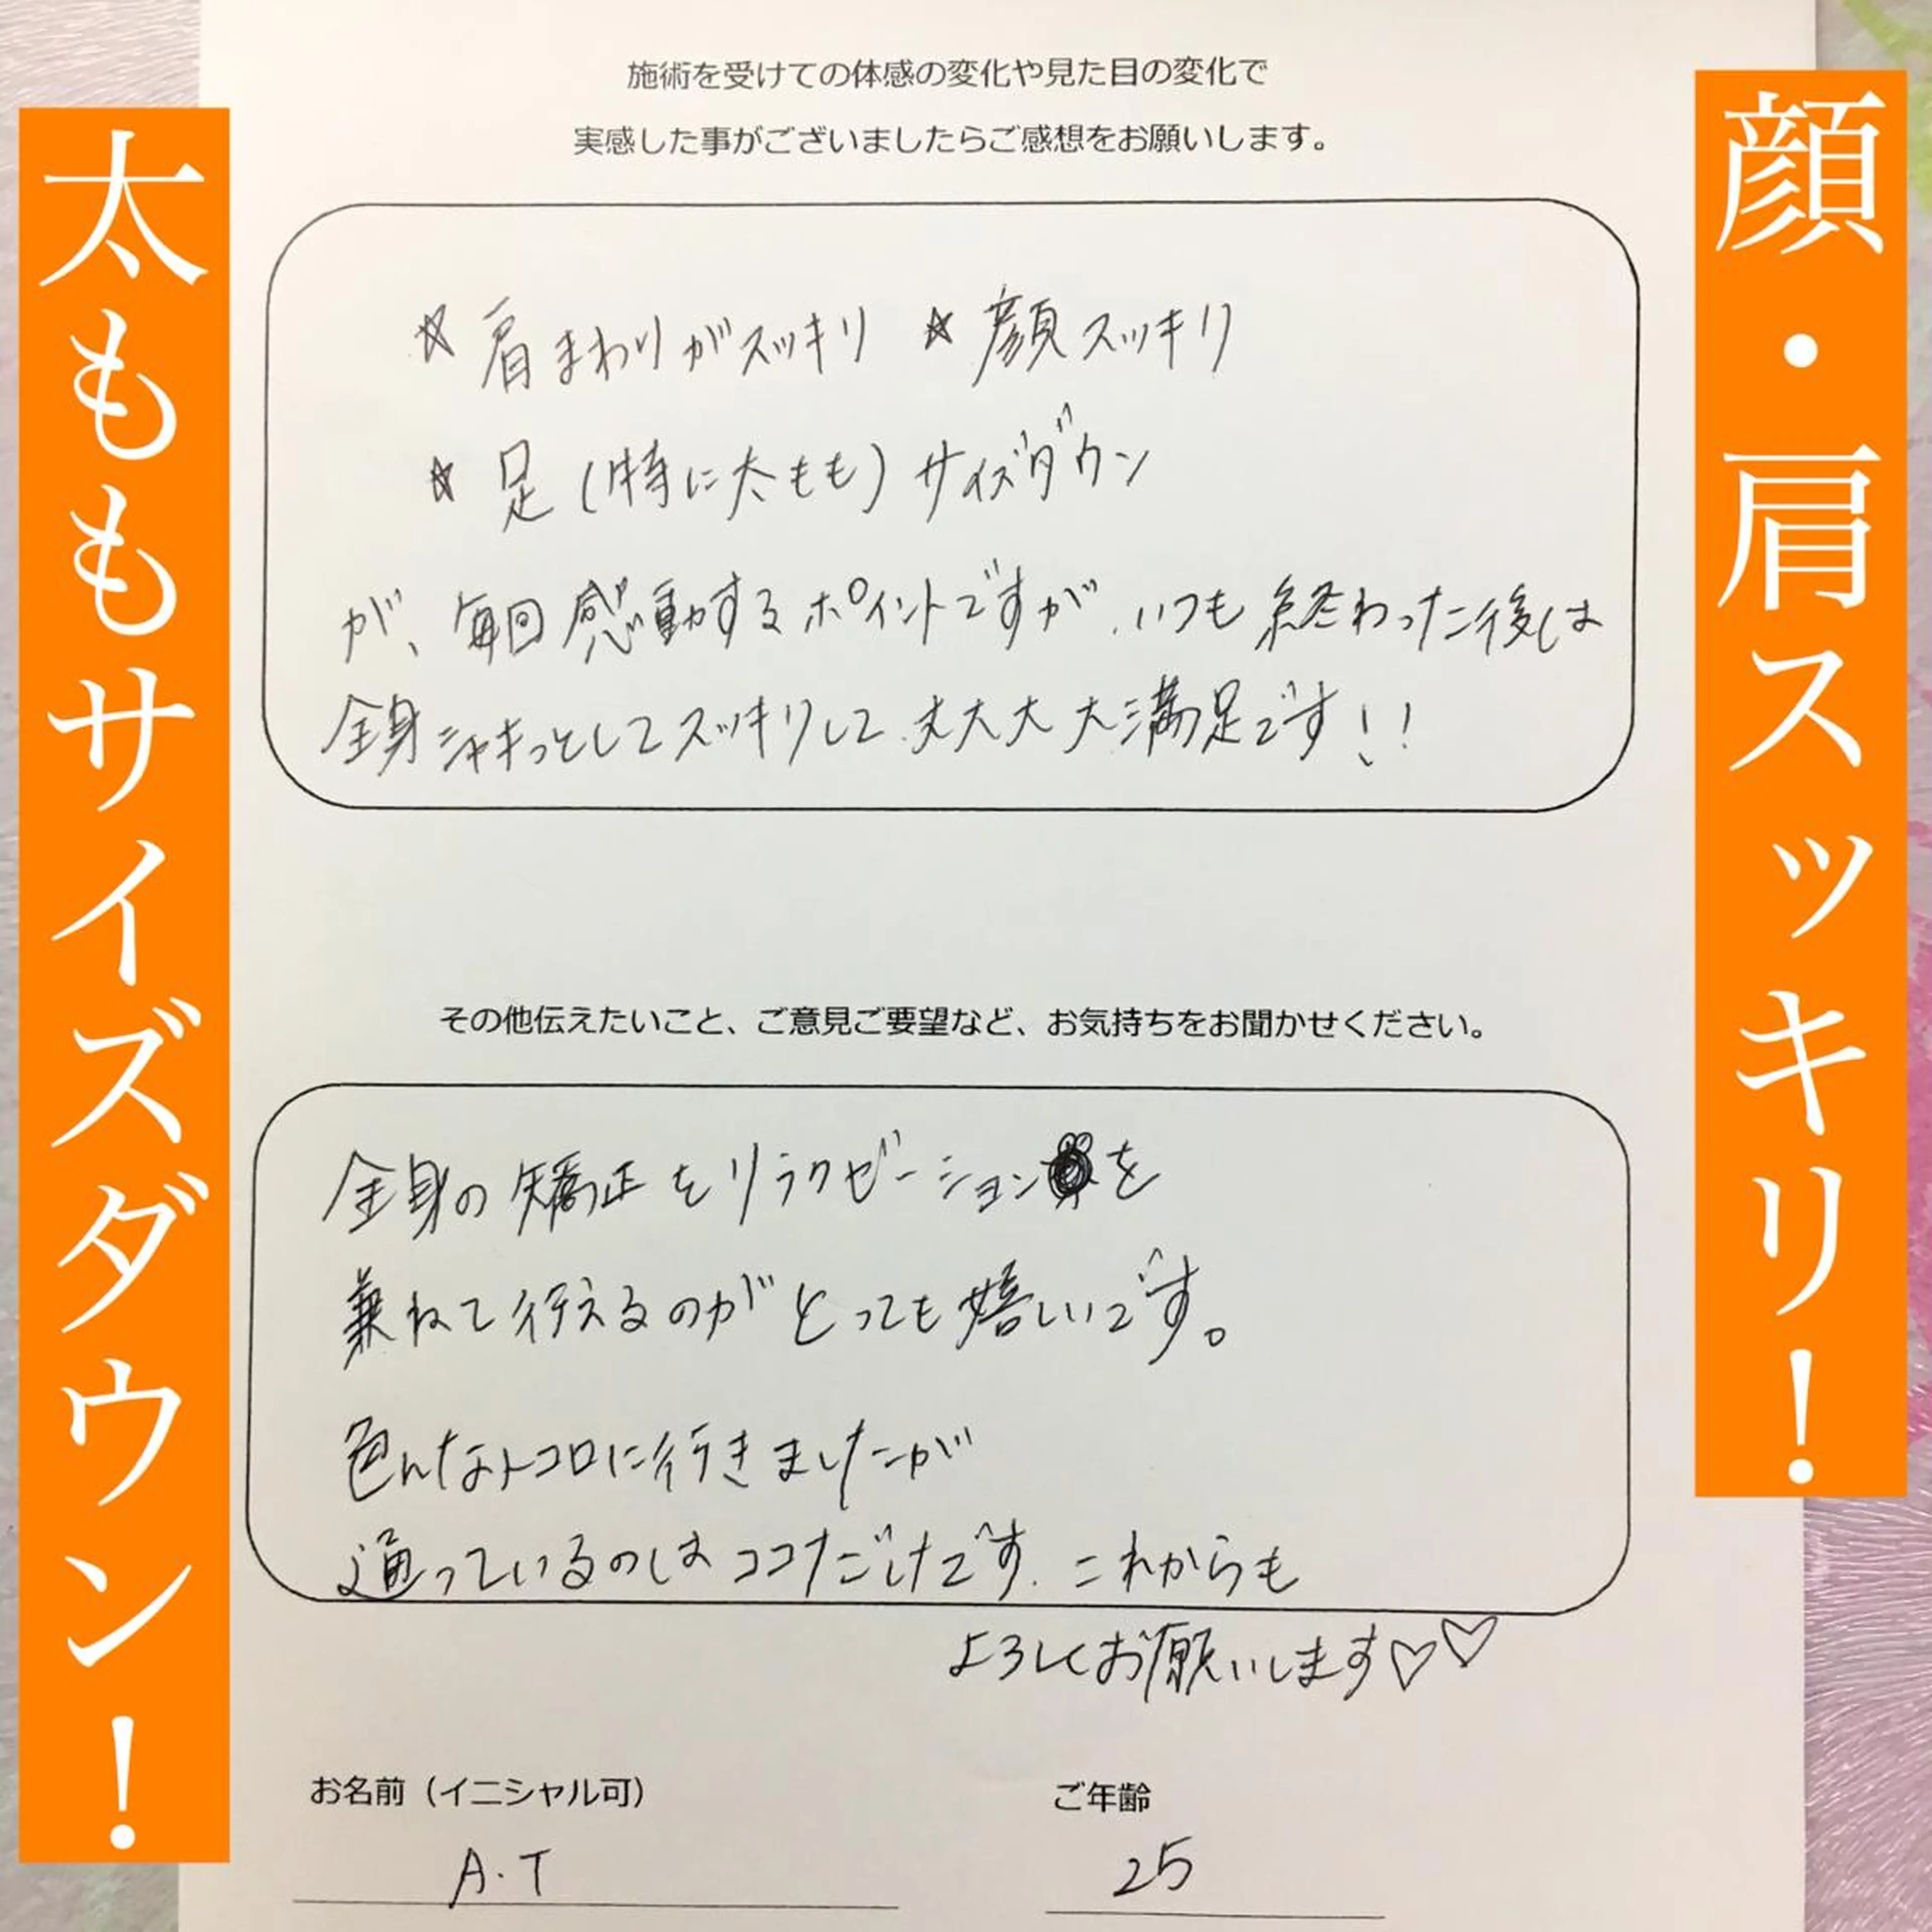 顔・肩スッキリ!
太ももサイズダウン!
施術を受けての体感の変化や見た目の変化で
実感した事がございましたらご感想をお願いします。
☆肩まわりがスッキリ ☆顔スッキリ
☆足(特に太もも)サイズダウン
が、毎回感動するポイントですが、いつも終わった後は
全身シャキっとしてスッキリして、大大大大満足です!!
その他伝えたいこと、ご意見ご要望など、お気持ちをお聞かせください。
全身の矯正をリラクゼーションを
兼ねて行えるのがとっても嬉しいです。
色んなトコロに行きましたが
通っているのはココだけです。これからも
よろしくお願いします♡♡
お名前(イニシャル可) ご年齢
A.T 25